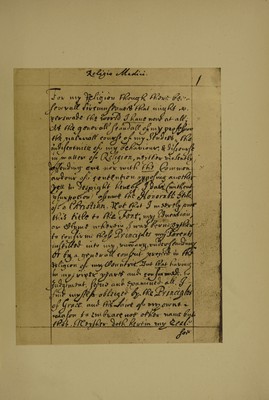 Religio Medici
1
For my Religion though there be
severall circumstances that might
perswade the world I have none at all,
as the generall scandall of my profession
the naturall course of my studies, the
indifferencie of my behaviour, & discourse
in matters of Religion, neither violently
defending one nor with the common
ardour of contention opposing another
yet in despight hereof I dare (without
usurpation) assume the Honorable stile
of a Christian. Not that I meerly owe
this title to the Font, my Education
or Clymate wherein I was borne
to confirme those Principles my Parents
instilled into my understanding
or by a generall consent proceed in the
Religion of my Countrey. But that having
in my riper yeares and confirmed
Judgment, seene and examined all, I
find my selfe obliged by the Principles
of Grace, and the Law of mine owne
reason to embrace noe other name but
this. Neither doth herein my zeale
for